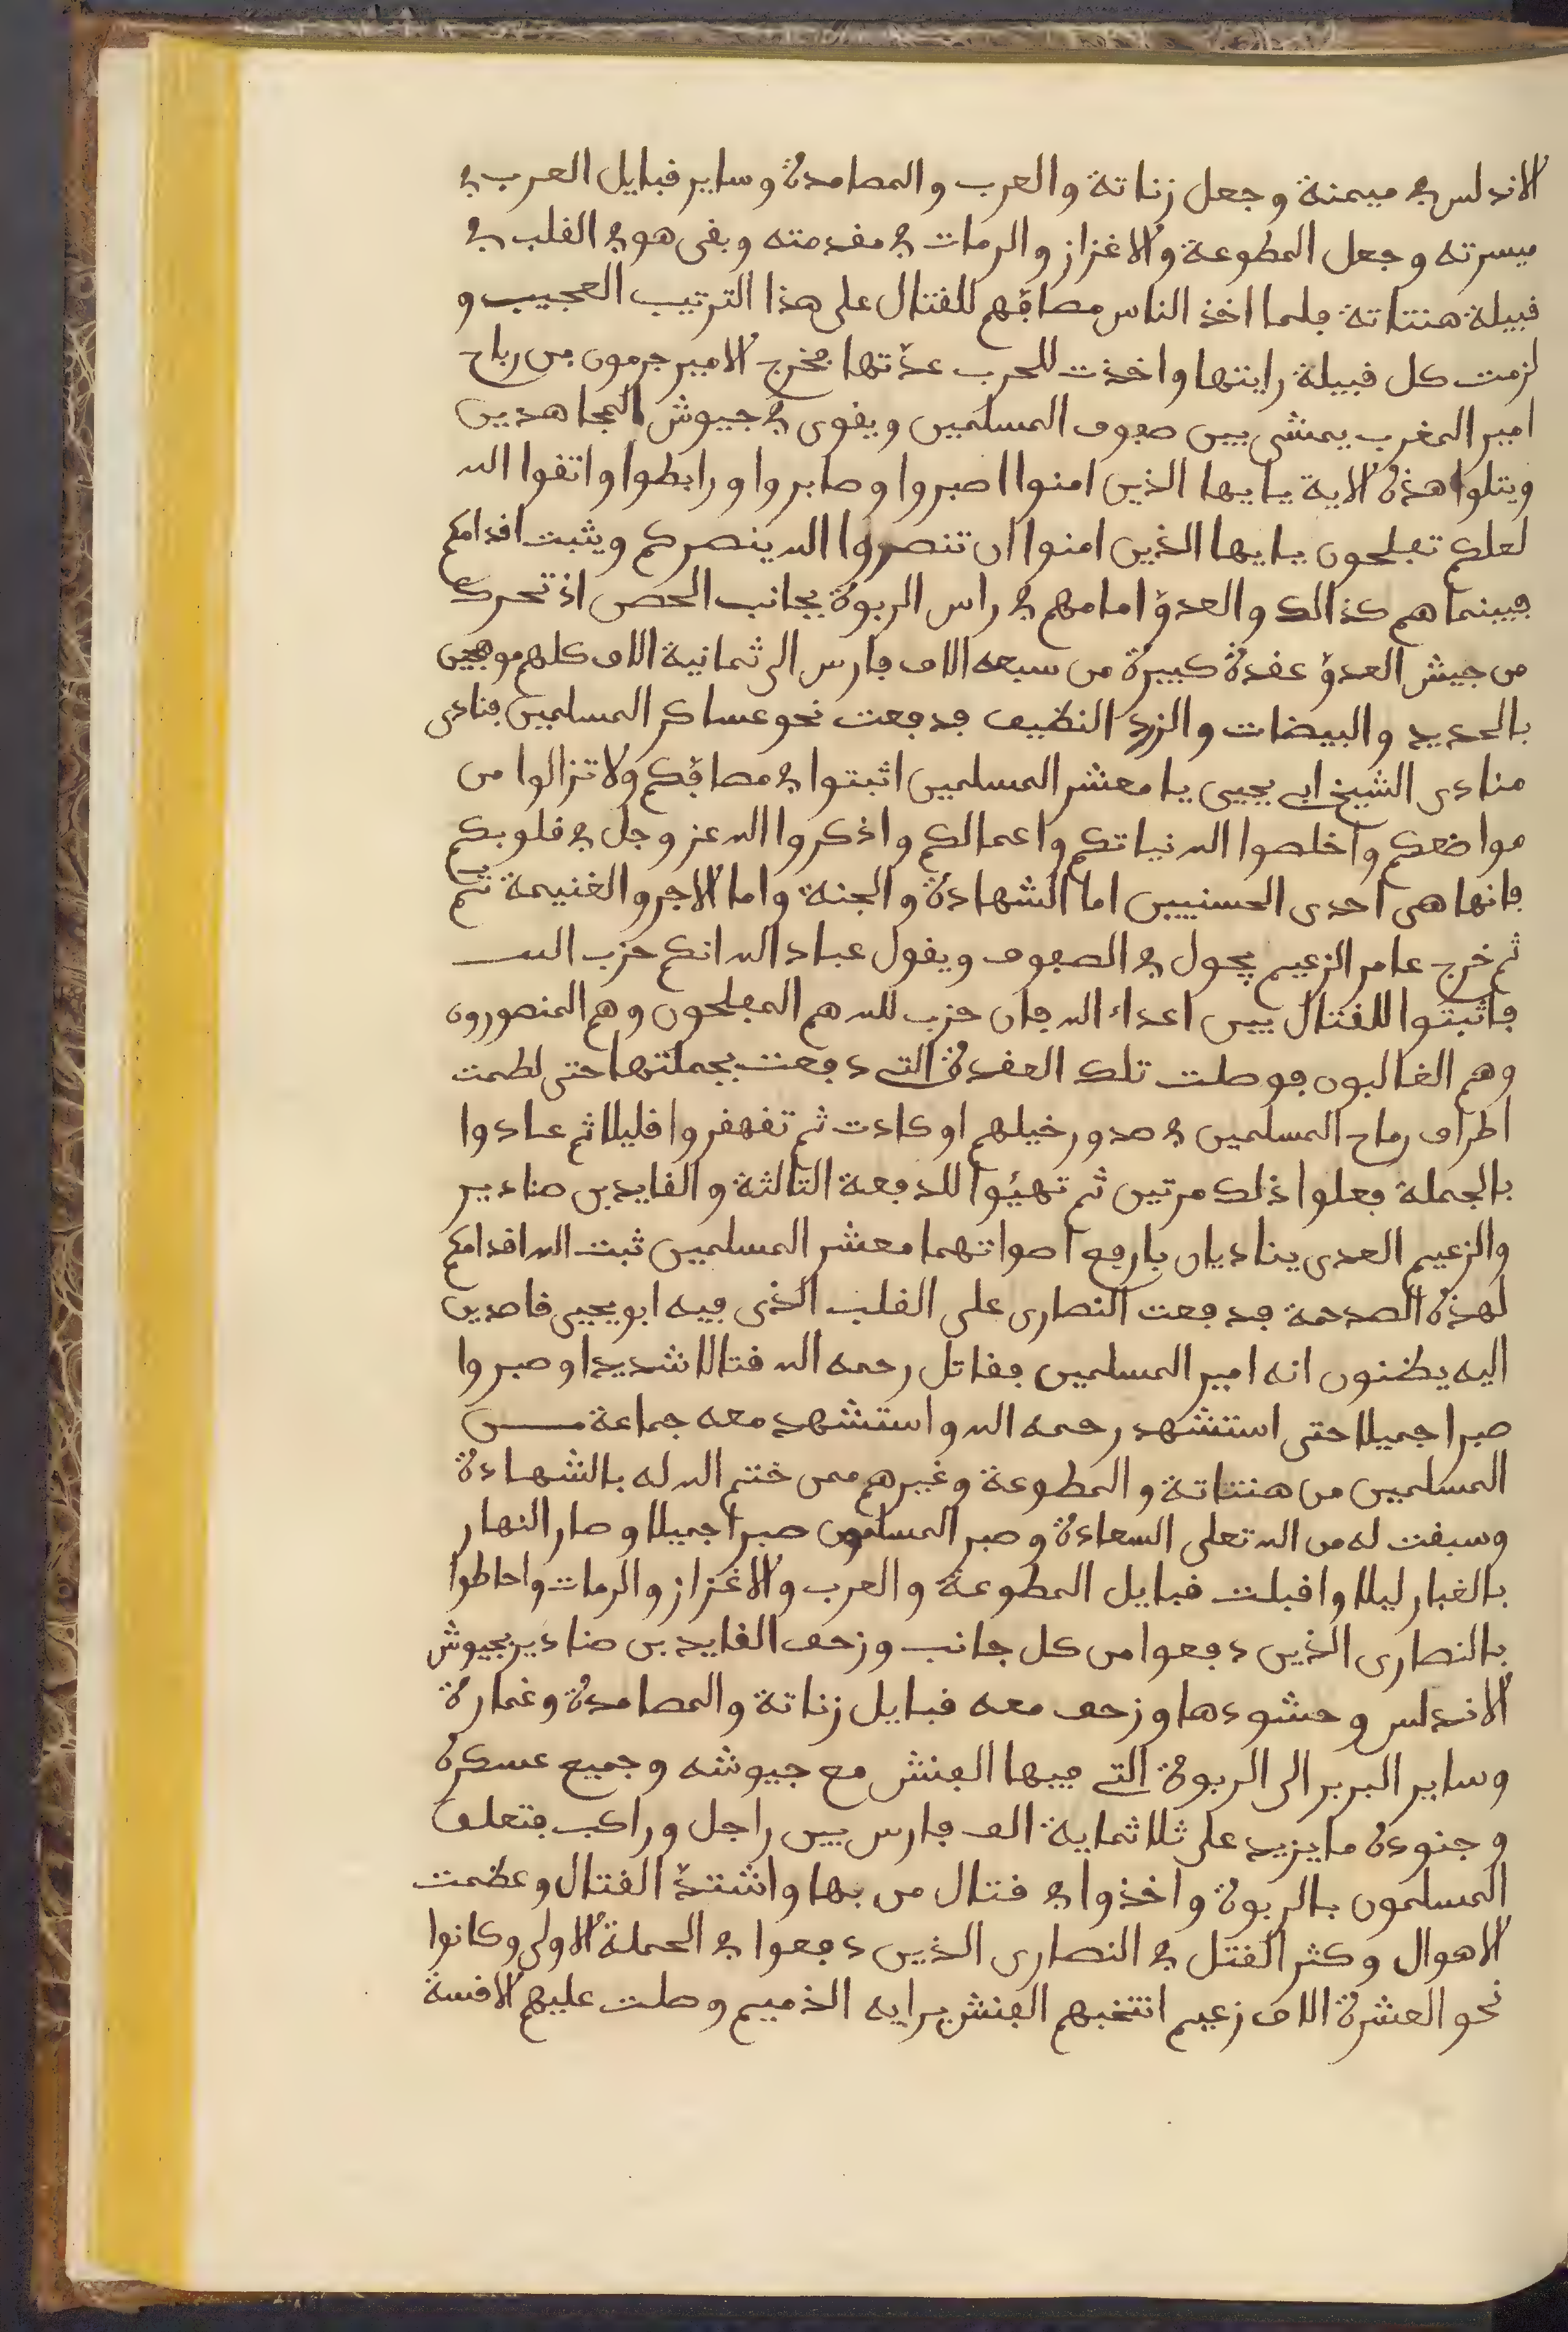 الاندلس في ميمنة وجعل زناتة والعرب والمصامدة وساير قبايل العرب في
ميسرته وجعل المطوعة والاغزاز والرمات في مقدمته وبقى هو في القلب في
قبيلة هنتاتة فلما اخذ الناس مصافّهم للقتال على هذا الترتيب العجيب و
لزمت كل قبيلة رايتها واخذت للحرب عدّتها فخرج الامير جرمون بن رباح
امير المغرب يمشى بين صفوف المسلمين ويقوى في جيوش المجاهدين
ويتلوا هذه الاية يايها الذين امنوا اصبروا وصابروا ورابطوا واتقوا الله
لعلكم تفلحون يايها الذين امنوا ان تنصروا الله ينصركم ويثبت اقدامكم
فبينما هم كذالك والعدوّ امامهم في راس الربوة بجانب الحصن اذ تحرك
من جيش العدوّ عقدة كبيرة من سبعه الاف فارس الى ثمانية الاف كلهم موهجين
بالحديد والبيضات والزرد النظيف فدفعت نحو عساكر المسلمين فنادى
منادى الشيخ ابى يحيى يا معشر المسلمين اثبتوا في مصافّكم ولا تزالوا من
مواضعكم واخلصوا الله نياتكم واعمالكم واذكروا الله عز وجل في قلوبكم
فانها هى احدى الحسنيين اما الشهادة والجنة واما الاجر والغنيمة ثم
ثم خرج عامر الزعيم يجول في الصفوف ويقول عباد الله انكم حزب الله
فاثبتوا للقتال بين اعداء الله فان حزب لله هم المفلحون وهم المنصورون
وهم الغالبون فوصلت تلك العقدة التى دفعت بجملتها حتى لطمت
اطراف رماح المسلمين في صدور خيلهم او كادت ثم تقهقروا قليلا ثم عادوا
بالجملة فعلوا ذلك مرتين ثم تهيئوا للدفعة الثالثة والقايد بن صنادير
والزعيم العدى يناديان بارفع اصواتهما معشر المسلمين ثبت الله اقدامكم
لهذه الصدمة فدفعت النصارى على القلب الذى فيه ابو يحيى قاصدين
اليه يظنون انه امير المسلمين فقاتل رحمه الله قتالا شديدا وصبروا
صبرا جميلا حتى استشهد رحمه الله واستشهد معه جماعة من
المسلمين من هنتاتة والمطوعة وغيرهم ممن ختم الله له بالشهادة
وسبقت له من الله تعلى السعادة وصبر المسلمون صبرا جميلا وصار النهار
بالغبار ليلا واقبلت قبايل المطوعة والعرب والاغزاز والرمات واحاطوا
بالنصارى الذين دفعوا من كل جانب وزحف القايد بن صنادير بجيوش
الاندلس وحشودها وزحف معه قبايل زناتة والمصامدة وغمارة
وساير البربر الى الربوة التى فيها الفنش مع جيوشه وجميع عسكره
وجنوده ما يزيد على ثلاثماية الف فارس بين راجل وراكب فتعلق
المسلمون بالربوة واخذوا في قتال من بها واشتدّ القتال وعظمت
الاهوال وكثر القتل في النصارى الذين دفعوا في الحملة الاولى وكانوا
نحو العشرة الاف زعيم انتخبهم الفنش برايه الذميم وصلت عليهم الاقسة